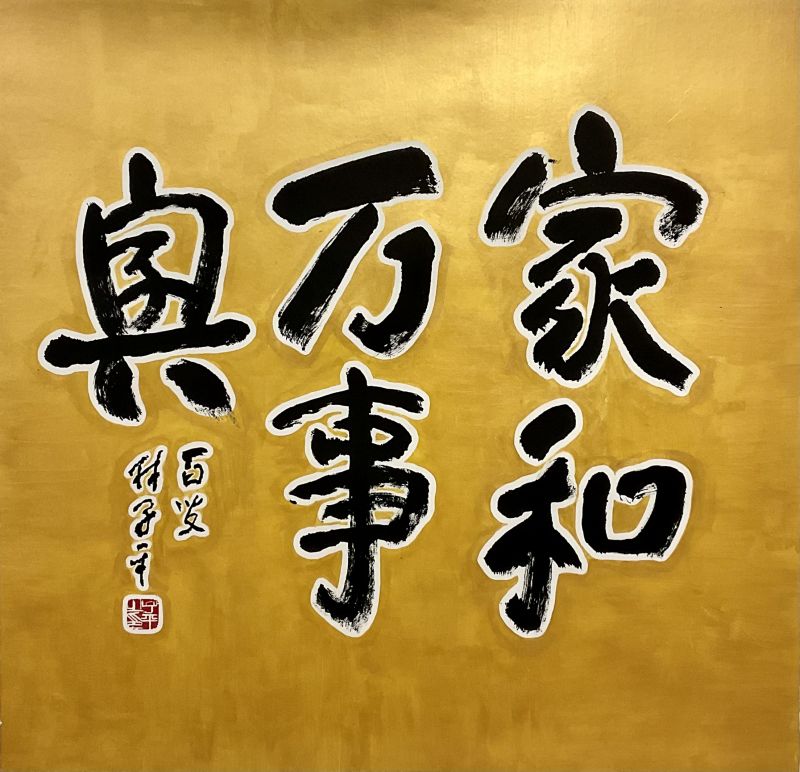 家和
万事
興
百叟
林子平